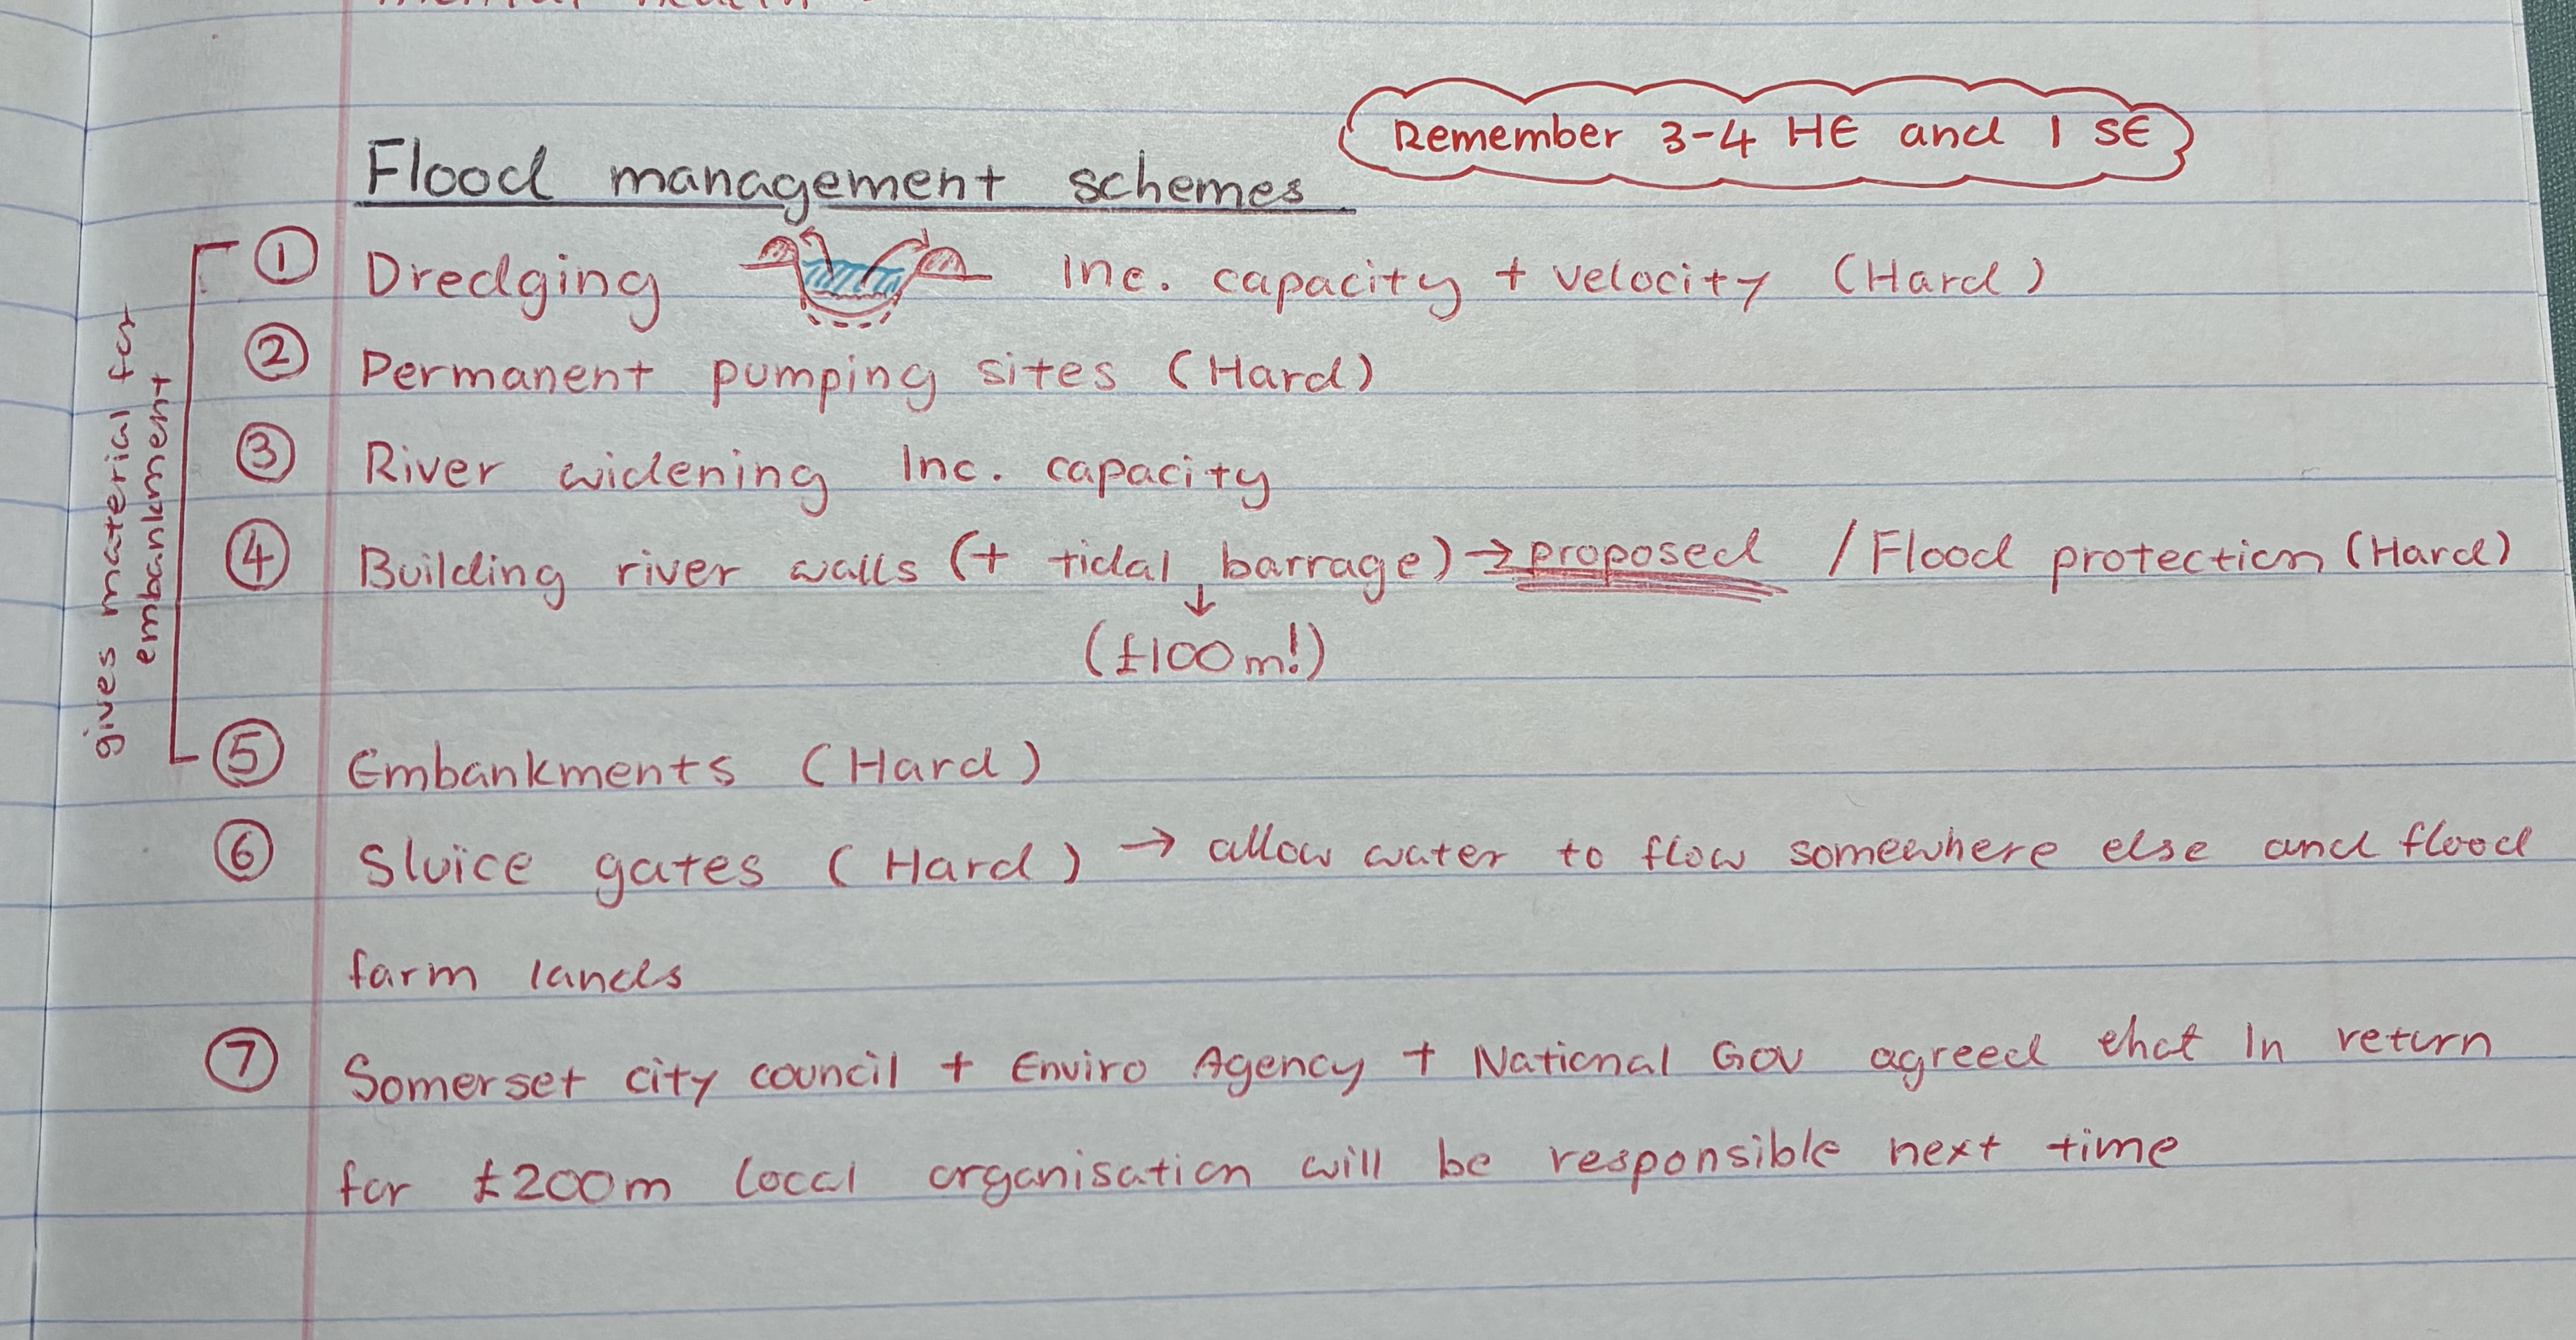 mental health
Remember 3-4 HE and 1 SE
Flood management schemes
① Dredging Inc. capacity + velocity (Hard)
② Permanent pumping sites (Hard)
③ River widening Inc. capacity
④ Building river walls (+ tidal barrage) → proposed / Flood protection (Hard)
↓
(£100m!)
⑤ Embankments (Hard)
gives material for
embankment
⑥ Sluice gates (Hard) → allow water to flow somewhere else and flood
farm lands
⑦ Somerset city council + Enviro Agency + National Gov agreed that In return
for £200m local organisation will be responsible next time